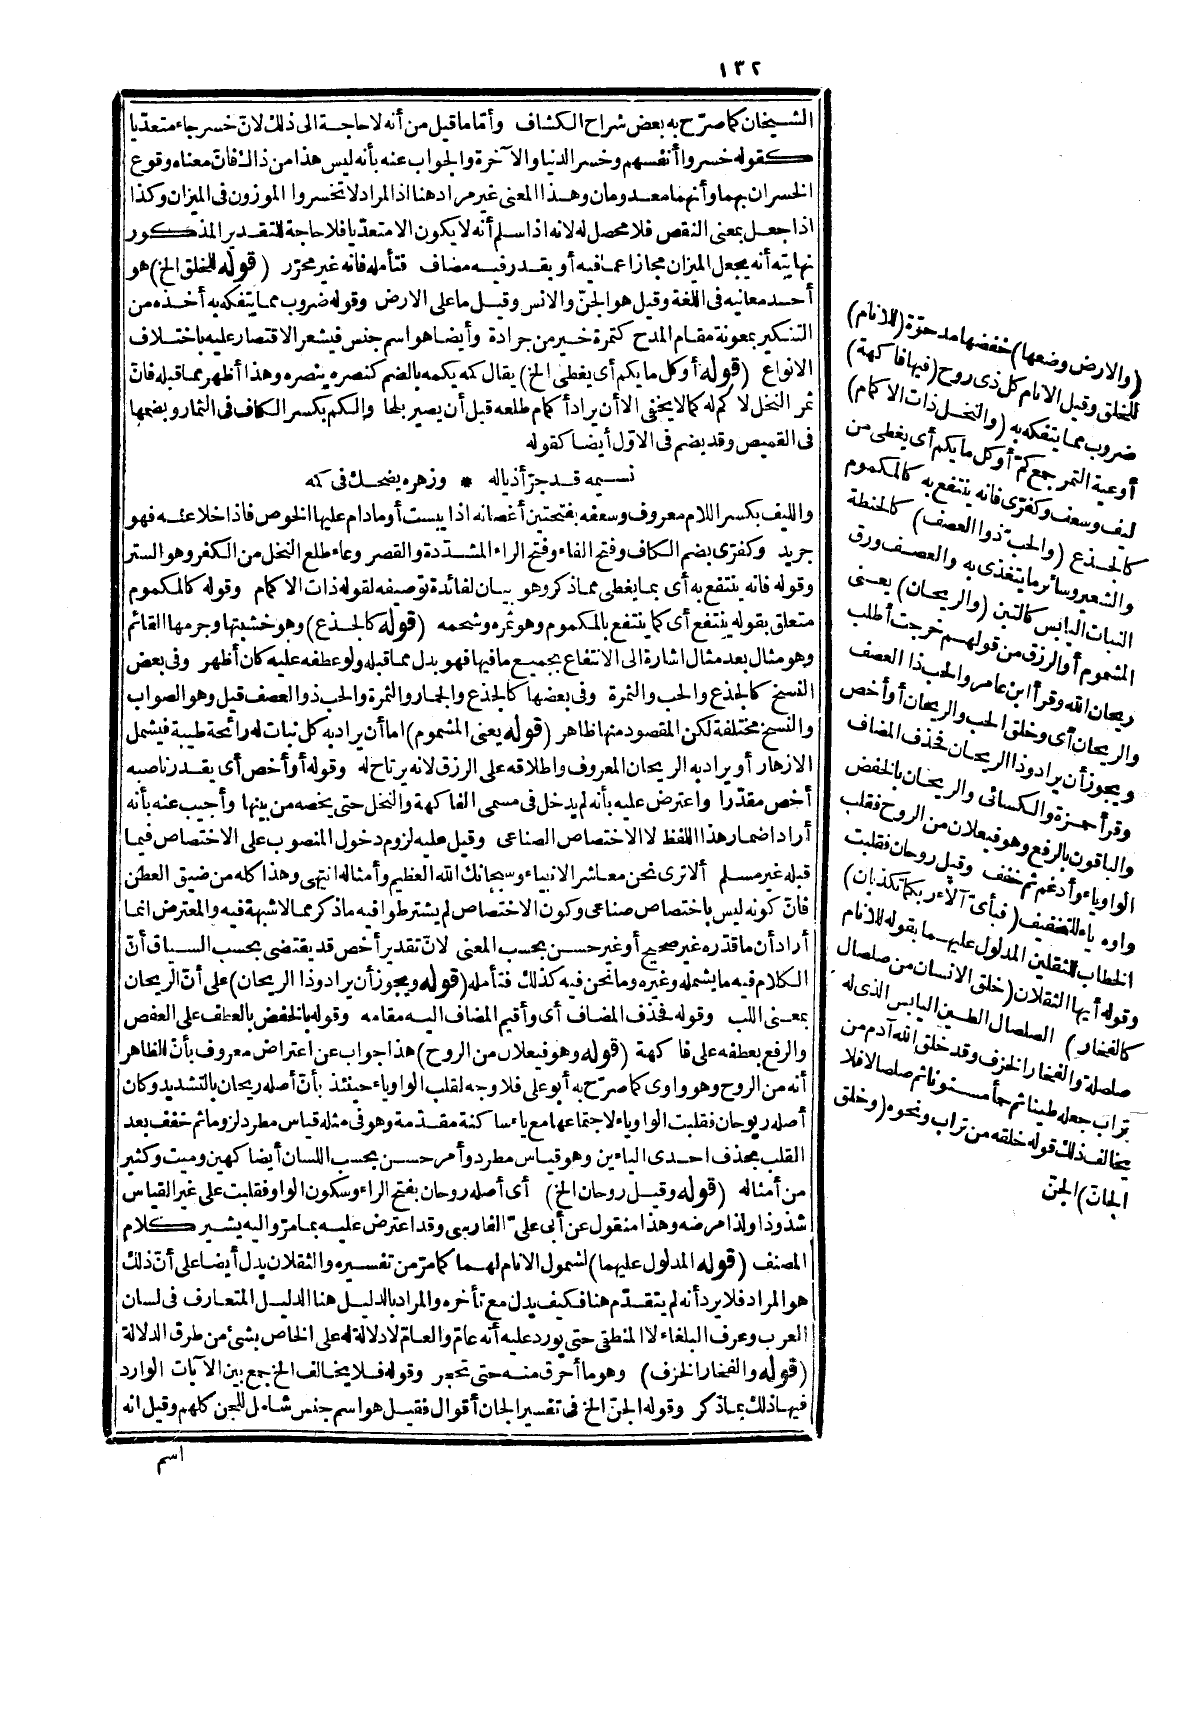 ١٣٢
الشيخان كما صرّح به بعض شراح الكشاف وأمّا ما قيل من أنه لا حاجة الى ذلك لانّ خسر جاء متعدّيا
كقوله خسروا أنفسهم وخسر الدنيا والآخرة والجواب عنه بأنه ليس هذا من ذاك فانّ معناه وقوع
الخسران بهما وأنهما معدومان وهذا المعنى غير مراد هنا اذ المراد لا تخسروا الموزون فى الميزان وكذا
اذا جعل بمعنى النقص فلا محصل له لانه اذا سلم أنه لا يكون الا متعدّيا فلا حاجة للتقدير المذكور
نهايته أنه يجعل الميزان مجازا عما فيه أو يقدر فيه مضاف فتأمله فانه غير محرّر (قوله للخلق الخ) هو
أحد معانيه فى اللغة وقيل هو الجنّ والانس وقيل ما على الارض وقوله ضروب مما يتفكه به أخذه من
التنكير بمعونة مقام المدح كتمرة خير من جرادة وأيضا هو اسم جنس فيشعر الاقتصار عليه باختلاف
الانواع (قوله أو كل ما يكم أى يغطى الخ) يقال كمه يكمه بالضم كنصره ينصره وهذا أظهر مما قبله فانّ
ثمر النخل لا كم له كما لا يخفى الا أن يراد أكمام طلعه قبل أن يصير بلحا والكم بكسر الكاف فى الثمار وبضمها
فى القميص وقد يضم فى الاوّل أيضا كقوله
نسيمه قد جرّ أذياله * وزهره يضحك فى كمه
والليف بكسر اللام معروف وسعفه بفتحتين أغصانه اذا يبست أو ما دام عليها الخوص فاذا خلا عنه فهو
جريد وكفرّى بضم الكاف وفتح الفاء وفتح الراء المشدّدة والقصر وعاء طلع النخل من الكفر وهو الستر
وقوله فانه ينتفع به أى بما يغطى مما ذكر وهو بيان لفائدة توصيفه لقوله ذات الاكمام وقوله كالمكموم
متعلق بقوله ينتفع أى كما ينتفع بالمكموم وهو ثمره وشحمه (قوله كالجذع) وهو خشبتها وجرمها القائم
وهو مثال بعد مثال اشارة الى الانتفاع بجميع ما فيها فهو بدل مما قبله ولو عطفه عليه كان أظهر وفى بعض
النسخ كالجذع والحب والثمرة وفى بعضها كالجذع والجمار والثمرة والحب ذو العصف قيل وهو الصواب
والنسخ مختلفة لكن المقصود منها ظاهر (قوله يعنى المشموم) اما أن يراد به كل نبات له رائحة طيبة فيشمل
الازهار أو يراد به الريحان المعروف واطلاقه على الرزق لانه يرتاح له وقوله أو أخص أى يقدر ناصبه
أخص مقدّرا واعترض عليه بأنه لم يدخل فى مسمى الفاكهة والنخل حتى يخصه من بينها وأجيب عنه بأنه
أراد اضمار هذا اللفظ لا الاختصاص الصناعى وقيل عليه لزوم دخول المنصوب على الاختصاص فيما
قبله غير مسلم ألا ترى نحن معاشر الانبياء وسبحانك الله العظيم وأمثاله انتهى وهذا كله من ضيق العطن
فانّ كونه ليس باختصاص صناعى وكون الاختصاص لم يشترطوا فيه ما ذكر مما لا شبهة فيه والمعترض انما
أراد أن ما قدّره غير صحيح أو غير حسن بحسب المعنى لانّ تقدير أخص قد يقتضى بحسب السياق أنّ
الكلام فيه ما يشمله وغيره وما نحن فيه كذلك فتأمله (قوله ويجوز أن يراد وذا الريحان) على أنّ الريحان
بمعنى اللب وقوله فحذف المضاف أى وأقيم المضاف اليه مقامه وقوله بالخفض بالعطف على العصف
والرفع بعطفه على فاكهة (قوله وهو فيعلان من الروح) هذا جواب عن اعتراض معروف بأنّ الظاهر
أنه من الروح وهو واوى كما صرّح به أبو على فلا وجه لقلب الواو ياء حينئذ بأنّ أصله ريحان بالتشديد وكان
أصله ريوحان فقلبت الواو ياء لاجتماعها مع ياء ساكنة مقدّمة وهو فى مثله قياس مطرد لزوما ثم خفف بعد
القلب بحذف احدى الياءين وهو قياس مطرد وأمر حسن بحسب اللسان أيضا كهين وميت وكثير
من أمثاله (قوله وقيل روحان الخ) أى أصله روحان بفتح الراء وسكون الواو فقلبت على غير القياس
شذوذا ولذا مرضه وهذا منقول عن أبى علىّ الفارسى وقد اعترض عليه بما مرّ واليه يشير كلام
المصنف (قوله المدلول عليهما) لشمول الانام لهما كما مرّ من تفسيره والثقلان يدل أيضا على أنّ ذلك
هو المراد فلا يرد أنه لم يتقدّم هنا فكيف يدل مع تأخره والمراد بالدليل هنا الدليل المتعارف فى لسان
العرب وعرف البلغاء لا المنطقى حتى يورد عليه أنه عامّ والعامّ لا دلالة له على الخاص بشئ من طرق الدلالة
(قوله والفخار الخزف) وهو ما أحرق منه حتى تحجر وقوله فلا يخالف الخ جمع بين الآيات الوارد
فيها ذلك بما ذكر وقوله الجنّ الخ فى تفسير الجان أقوال فقيل هو اسم جنس شامل للجن كلهم وقيل انه
اسم
(والارض وضعها) خفضها مدحوّة (للانام)
للخلق وقيل الانام كل ذى روح (فيها فاكهة)
ضروب مما يتفكه به (والنخل ذات الاكمام)
أوعية التمر جمع كمّ أو كل ما يكم أى يغطى من
ليف وسعف وكفرّى فانه ينتفع به كالمكموم
كالجذع (والحب ذو العصف) كالحنطة
والشعير وسائر ما يتغذى به والعصف ورق
النبات اليابس كالتين (والريحان) يعنى
المشموم أو الرزق من قولهم خرجت أطلب
ريحان الله وقرأ ابن عامر والحب ذا العصف
والريحان أى وخلق الحب والريحان أو أخص
ويجوز أن يراد وذا الريحان فحذف المضاف
وقرأ حمزة والكسائى والريحان بالخفض
والباقون بالرفع وهو فيعلان من الروح فقلب
الواو ياء وأدغم ثم خفف وقيل روحان فقلبت
واوه ياء للتخفيف (فبأىّ آلاء ربكما تكذبان)
الخطاب للثقلين المدلول عليهما بقوله للانام
وقوله أيها الثقلان (خلق الانسان من صلصال
كالفخار) الصلصال الطين اليابس الذى له
صلصلة والفخار الخزف وقد خلق الله آدم من
تراب جعله طينا ثم حمأ مسنونا ثم صلصالا فلا
يخالف ذلك قوله خلقه من تراب ونحوه (وخلق
الجانّ) الجنّ